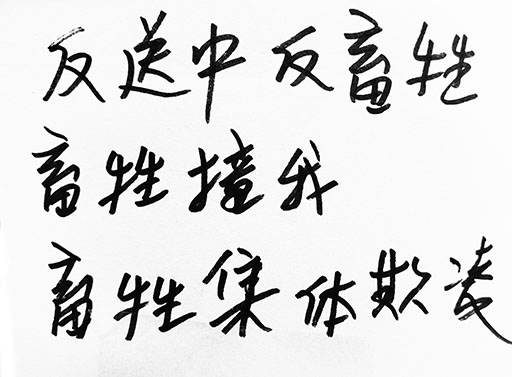 反送中反畜牲
畜牲撞我
畜牲集体欺凌